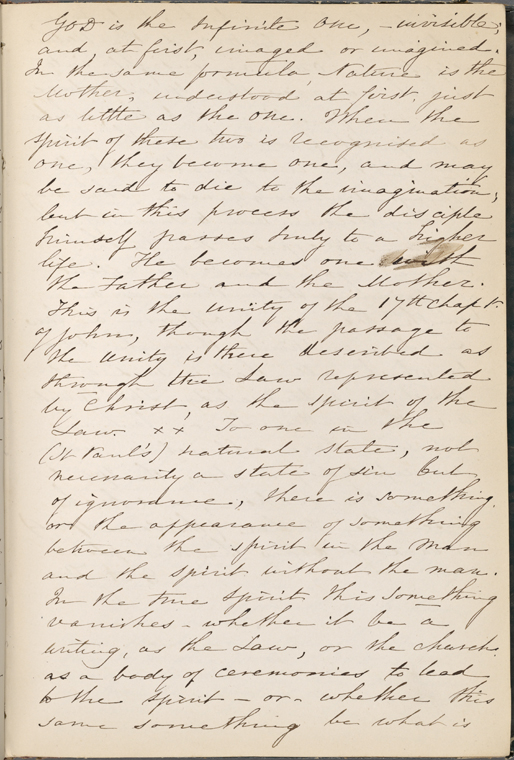 God is the Infinite One, - invisible,
and, at first, imaged or imagined.
In the same formula, Nature is the
Mother, understood at first, just
as little as the one. When the
spirit of these two is recognised as
one, they become one, and may
be said to die to the imagination;
but in this process the disciple
himself passes truly to a higher
life. He becomes one with
the Father and the Mother.
This is the unity of the 17th Chapt.
of John, though the passage to
the unity is there described as
through the Law represented
by Christ, as the spirit of the
Law. x x To one in the
(St Paul's) natural state, not
necessarily a state of sin but
of ignorance, there is something
or the appearance of something
between the spirit in the man
and the spirit without the man.
In the true spirit this something
vanishes - whether it be a
writing, as the Law, or the church
as a body of ceremonies to lead
to the spirit - or - whether this
same something be what is